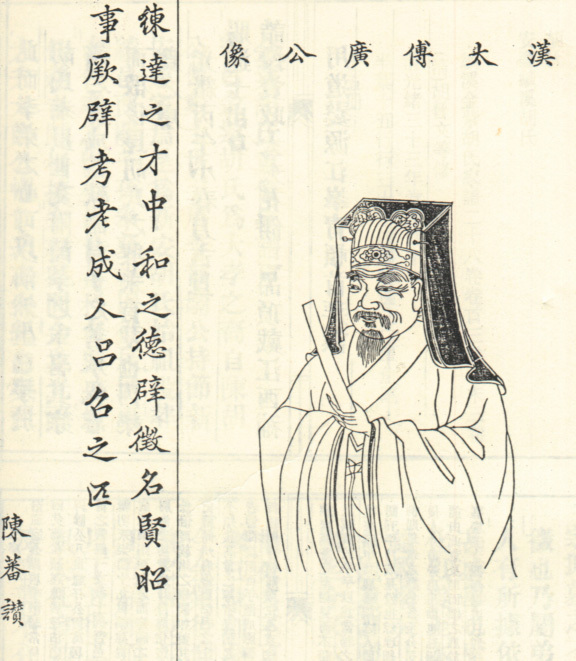 漢太傅廣公像
練達之才中和之徳辟徵名賢昭
事厥辟考老成人呂召之匹
陳蕃讃